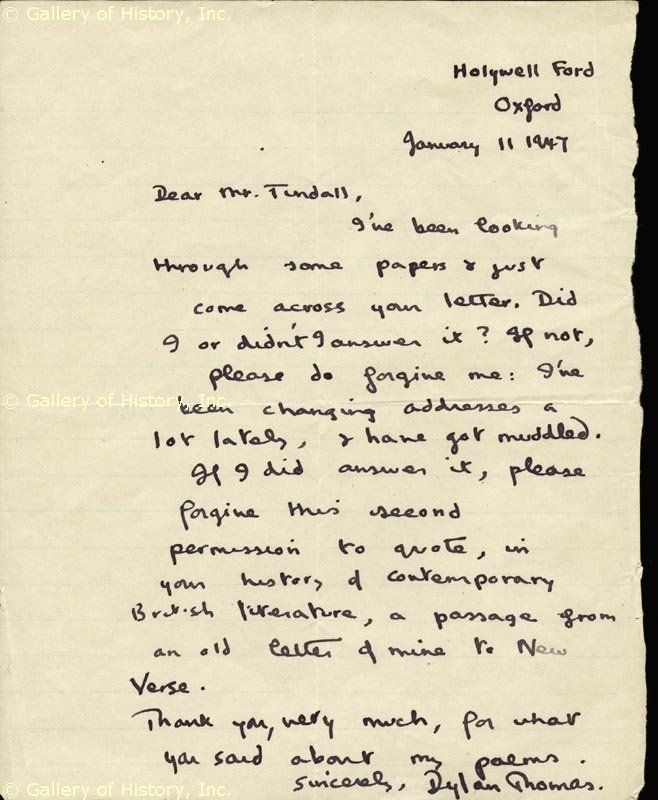 © Gallery of History, Inc.
Holywell Ford
Oxford
January 11 1947
Dear Mr. Tindall,
I've been looking
through some papers & just
come across your letter. Did
I or didn't I answer it? If not,
please do forgive me: I've
© Gallery of History, Inc.
been changing addresses a
lot lately, & have got muddled.
If I did answer it, please
forgive this second
permission to quote, in
your history of contemporary
British literature, a passage from
an old letter of mine to New
Verse.
Thank you, very much, for what
you said about my poems.
Sincerely, Dylan Thomas.
© Gallery of History, Inc.